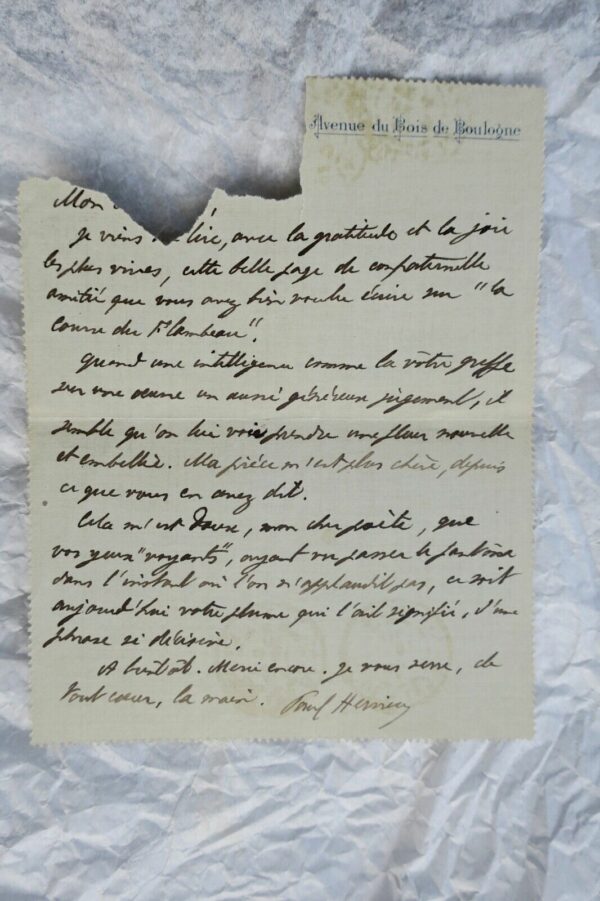 Avenue du Bois de Boulogne
Mon
je viens lire, avec la gratitude et la joie
les plus vives, cette belle page de confraternelle
amitié que vous avez bien voulu écrire sur "la
Course du Flambeau".
Quand une intelligence comme la vôtre greffe
sur une œuvre un aussi généreux jugement, il
semble qu'on lui voie prendre une fleur nouvelle
et embellie. Ma pièce m'est plus chère, depuis
ce que vous en avez dit.
Cela m'est doux, mon cher poète, que
vos yeux "voyants", ayant vu passer le fantôme
dans l'instant où l'on n'applaudit pas, ce soit
aujourd'hui votre plume qui l'ait signifié, d'une
phrase si décisive.
A bientôt. Merci encore. je vous serre, de
tout cœur, la main. Paul Hervieu